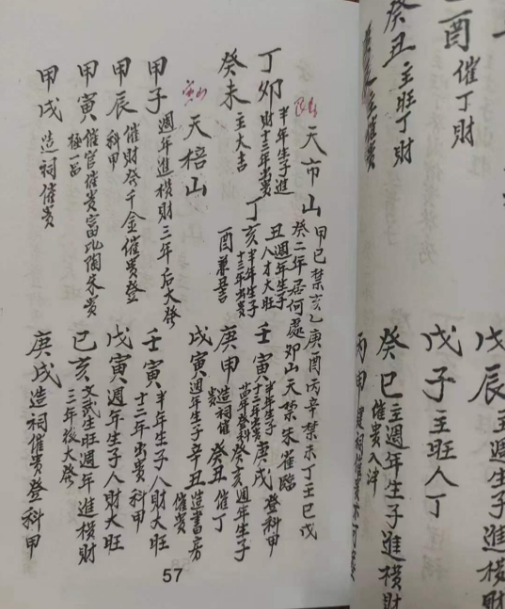 天市山
甲己禁亥乙庚酉丙辛禁未丁壬巳戊
癸二年居何處卯山天禁朱雀臨
丁卯半年生子進財十三年出貴
丁丑週年生子人才大旺
壬寅半年生子十二年出貴
庚戌登科甲
癸未主大吉
丁亥半年生子十三年出貴
丁酉兼吉
庚申造祠催貴
癸亥週年生子
癸丑催丁
戊寅週年生子
辛丑造書房催貴
天棓山
甲子週年進橫財三年后大發
壬寅半年生子人財大旺十二年出貴科甲
甲辰催財發千金催貴登科甲
戊寅週年生子人財大旺
甲寅催官催貴富比陶朱貴極一品
己亥文武生旺週年進橫財三年後大發
甲戌造祠催貴
庚戌造祠催貴登科甲
57
酉催丁財
癸丑主旺丁財
戊辰主週年生子進橫財
戊子主旺人丁
癸巳主週年生子進橫財催貴入泮